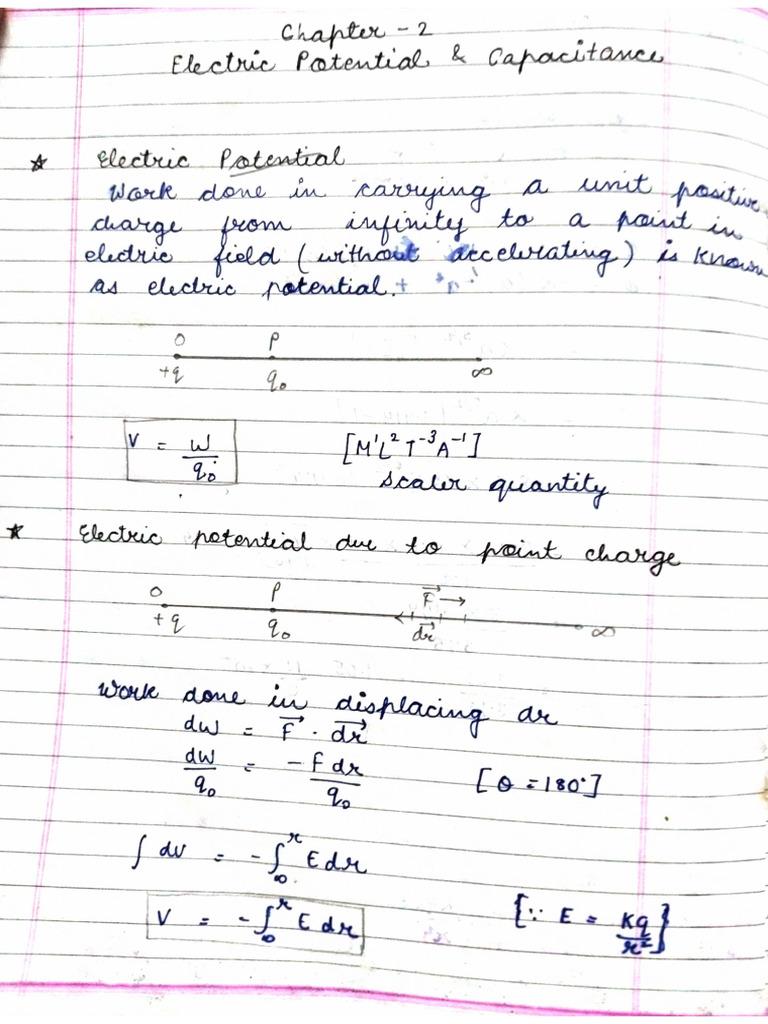 Chapter - 2
Electric Potential & Capacitance
★ Electric Potential
Work done in carrying a unit positive
charge from infinity to a point in
electric field (without accelerating) is known
as electric potential.
O P
+q q₀ ∞
V = W/q₀ [M¹L²T⁻³A⁻¹]
Scaler quantity
★ Electric potential due to point charge
O P F⃗ →
+q q₀ dr⃗ ∞
Work done in displacing dr
dw = F⃗ · dr⃗
dw/q₀ = -F dr/q₀ [θ = 180°]
∫ dv = -∫∞^r E dr
V = -∫∞^r E dr [∵ E = Kq/r²]